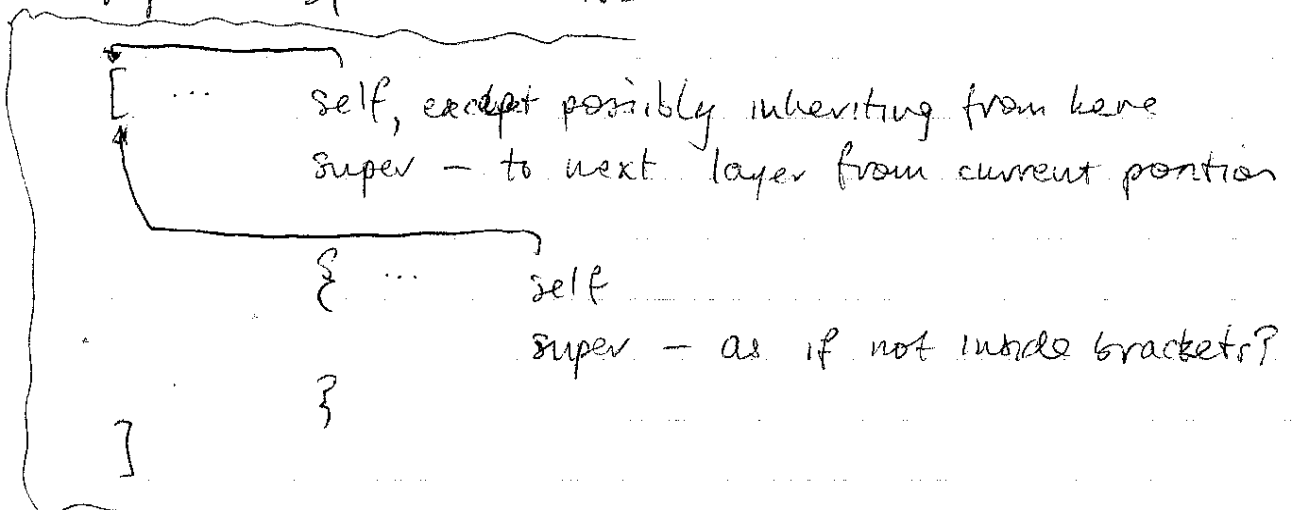 [ ... self, except possibly inheriting from here
super – to next layer from current position
{ ... self
super – as if not inside brackets?
}
]